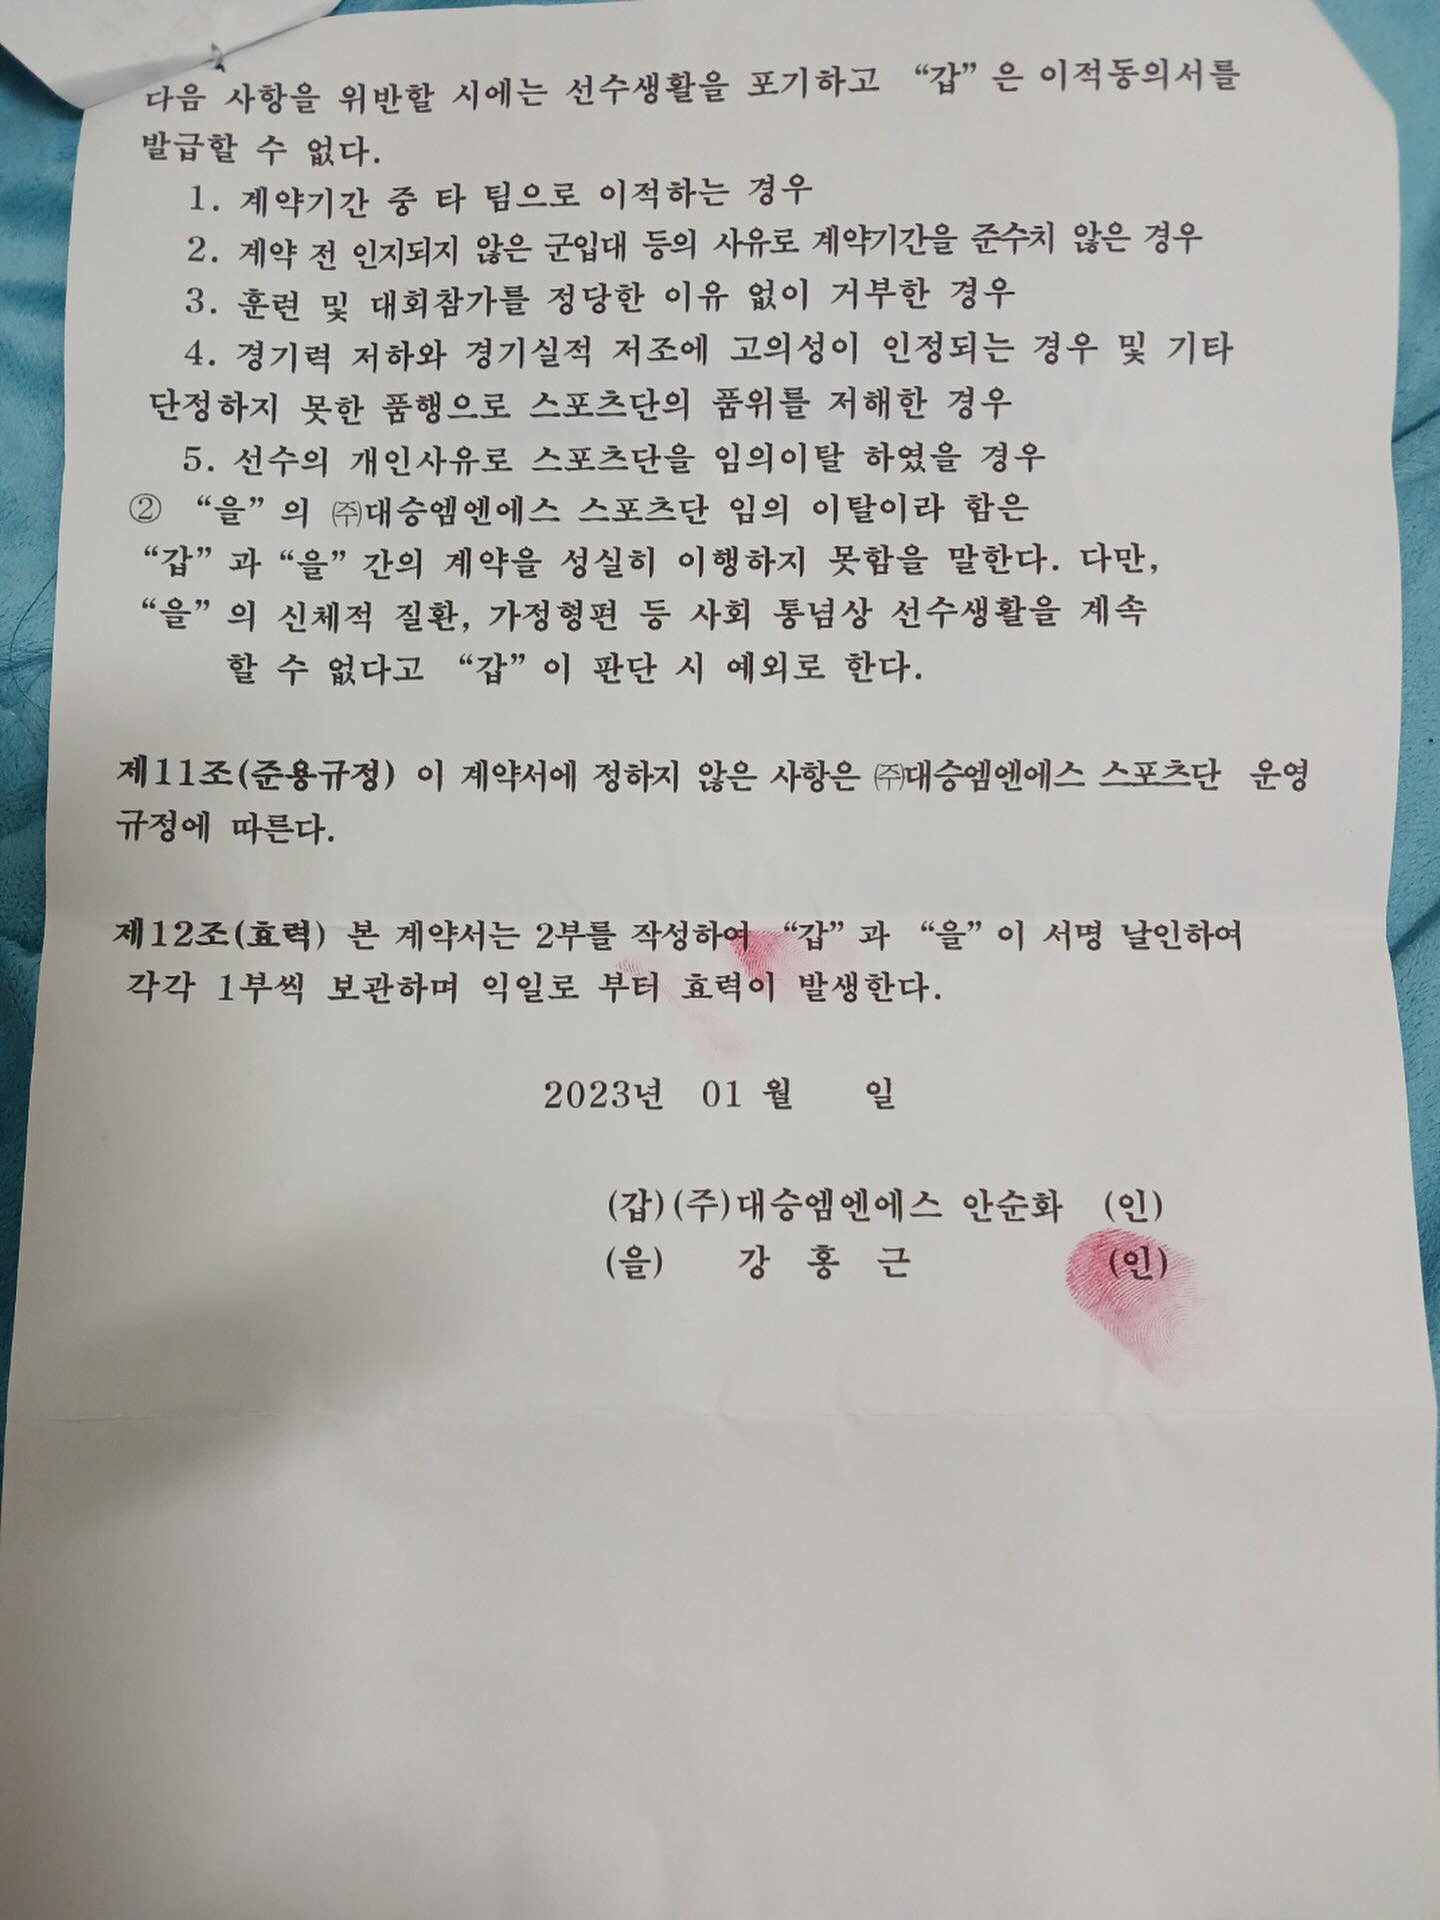 다음 사항을 위반할 시에는 선수생활을 포기하고 “갑” 은 이적동의서를
발급할 수 없다.
1. 계약기간 중 타 팀으로 이적하는 경우
2. 계약 전 인지되지 않은 군입대 등의 사유로 계약기간을 준수치 않은 경우
3. 훈련 및 대회참가를 정당한 이유 없이 거부한 경우
4. 경기력 저하와 경기실적 저조에 고의성이 인정되는 경우 및 기타
단정하지 못한 품행으로 스포츠단의 품위를 저해한 경우
5. 선수의 개인사유로 스포츠단을 임의이탈 하였을 경우
② “을” 의 ㈜대승엠엔에스 스포츠단 임의 이탈이라 함은
“갑” 과 “을” 간의 계약을 성실히 이행하지 못함을 말한다. 다만,
“을” 의 신체적 질환, 가정형편 등 사회 통념상 선수생활을 계속
할 수 없다고 “갑” 이 판단 시 예외로 한다.
제11조(준용규정) 이 계약서에 정하지 않은 사항은 ㈜대승엠엔에스 스포츠단 운영
규정에 따른다.
제12조(효력) 본 계약서는 2부를 작성하여 “갑” 과 “을” 이 서명 날인하여
각각 1부씩 보관하며 익일로 부터 효력이 발생한다.
2023년 01 월 일
(갑)(주)대승엠엔에스 안순화 (인)
(을) 강 홍 근 (인)